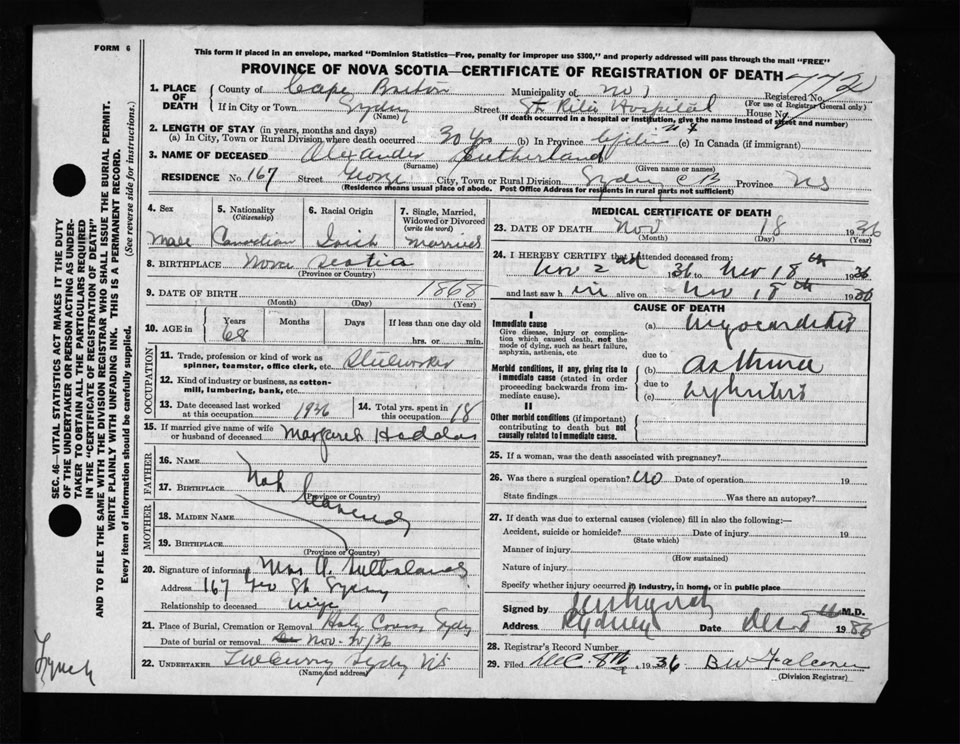 FORM 6
This form if placed in an envelope, marked "Dominion Statistics—Free, penalty for improper use $300," and properly addressed will pass through the mail "FREE"
PROVINCE OF NOVA SCOTIA—CERTIFICATE OF REGISTRATION OF DEATH 772
1. PLACE OF DEATH
County of Cape Breton Municipality of No 1 Registered No.
(For use of Registrar General only)
If in City or Town Sydney Street St Ritas Hospital House No.
(Name) (If death occurred in a hospital or institution, give the name instead of street and number)
2. LENGTH OF STAY (in years, months and days)
(a) In City, Town or Rural Division where death occurred 30 Yrs (b) In Province (c) In Canada (if immigrant)
3. NAME OF DECEASED Alexander Sutherland
(Surname) (Given name or names)
RESIDENCE No. 167 Street George City, Town or Rural Division Sydney C B Province NS
(Residence means usual place of abode. Post Office Address for residents in rural parts not sufficient)
4. Sex
Male
5. Nationality
(Citizenship)
Canadian
6. Racial Origin
7. Single, Married, Widowed or Divorced
(write the word)
Married
8. BIRTHPLACE Nova Scotia
9. DATE OF BIRTH 1868
(Month) (Day) (Year)
10. AGE in
Years Months Days If less than one day old
68 hrs. or min.
OCCUPATION
11. Trade, profession or kind of work as spinner, teamster, office clerk, etc. Steelworker
12. Kind of industry or business, as cotton-mill, lumbering, bank, etc.
13. Date deceased last worked at this occupation 1936
14. Total yrs. spent in this occupation 18
15. If married give name of wife or husband of deceased Margaret
FATHER
16. NAME
17. BIRTHPLACE
(Province or Country)
MOTHER
18. MAIDEN NAME
19. BIRTHPLACE
(Province or Country)
20. Signature of informant Mrs A. Sutherland
Address 167 Geo St Sydney
Relationship to deceased wife
21. Place of Burial, Cremation or Removal Holy Cross Sydney
Date of burial or removal Nov.
22. UNDERTAKER Sydney NS
(Name and address)
MEDICAL CERTIFICATE OF DEATH
23. DATE OF DEATH Nov 18 1936
(Month) (Day) (Year)
24. I HEREBY CERTIFY that I attended deceased from:
Nov 2nd 1936 to Nov 18th 1936
and last saw him alive on Nov 18th 1936
CAUSE OF DEATH
I
Immediate cause
Give disease, injury or complication which caused death, not the mode of dying, such as heart failure, asphyxia, asthenia, etc
(a) Myocarditis
due to
Morbid conditions, if any, giving rise to immediate cause (stated in order proceeding backwards from immediate cause).
(b) asthma
due to
(c)
II
Other morbid conditions (if important) contributing to death but not causally related to immediate cause.
25. If a woman, was the death associated with pregnancy?
26. Was there a surgical operation? No Date of operation 19
State findings Was there an autopsy?
27. If death was due to external causes (violence) fill in also the following:
Accident, suicide or homicide? Date of injury 19
(State which)
Manner of injury
(How sustained)
Nature of injury
Specify whether injury occurred in industry, in home, or in public place
Signed by M.D.
Address Sydney Date Dec 1936
28. Registrar's Record Number
29. Filed Dec. 8th 1936 B W Falconer
(Division Registrar)
SEC. 46—VITAL STATISTICS ACT MAKES IT THE DUTY
OF THE UNDERTAKER OR PERSON ACTING AS UNDER-
TAKER TO OBTAIN ALL THE PARTICULARS REQUIRED
IN THE "CERTIFICATE OF REGISTRATION OF DEATH"
AND TO FILE THE SAME WITH THE DIVISION REGISTRAR WHO SHALL ISSUE THE BURIAL PERMIT.
WRITE PLAINLY WITH UNFADING INK. THIS IS A PERMANENT RECORD.
Every item of information should be carefully supplied. (See reverse side for instructions.)
Lynch